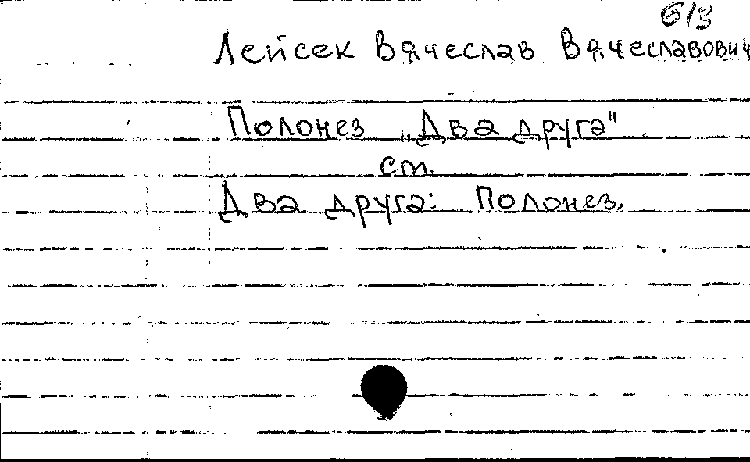 б/з
Лейсек Вячеслав Вячеславович
Полонез „Два друга"
см.
Два друга: Полонез.